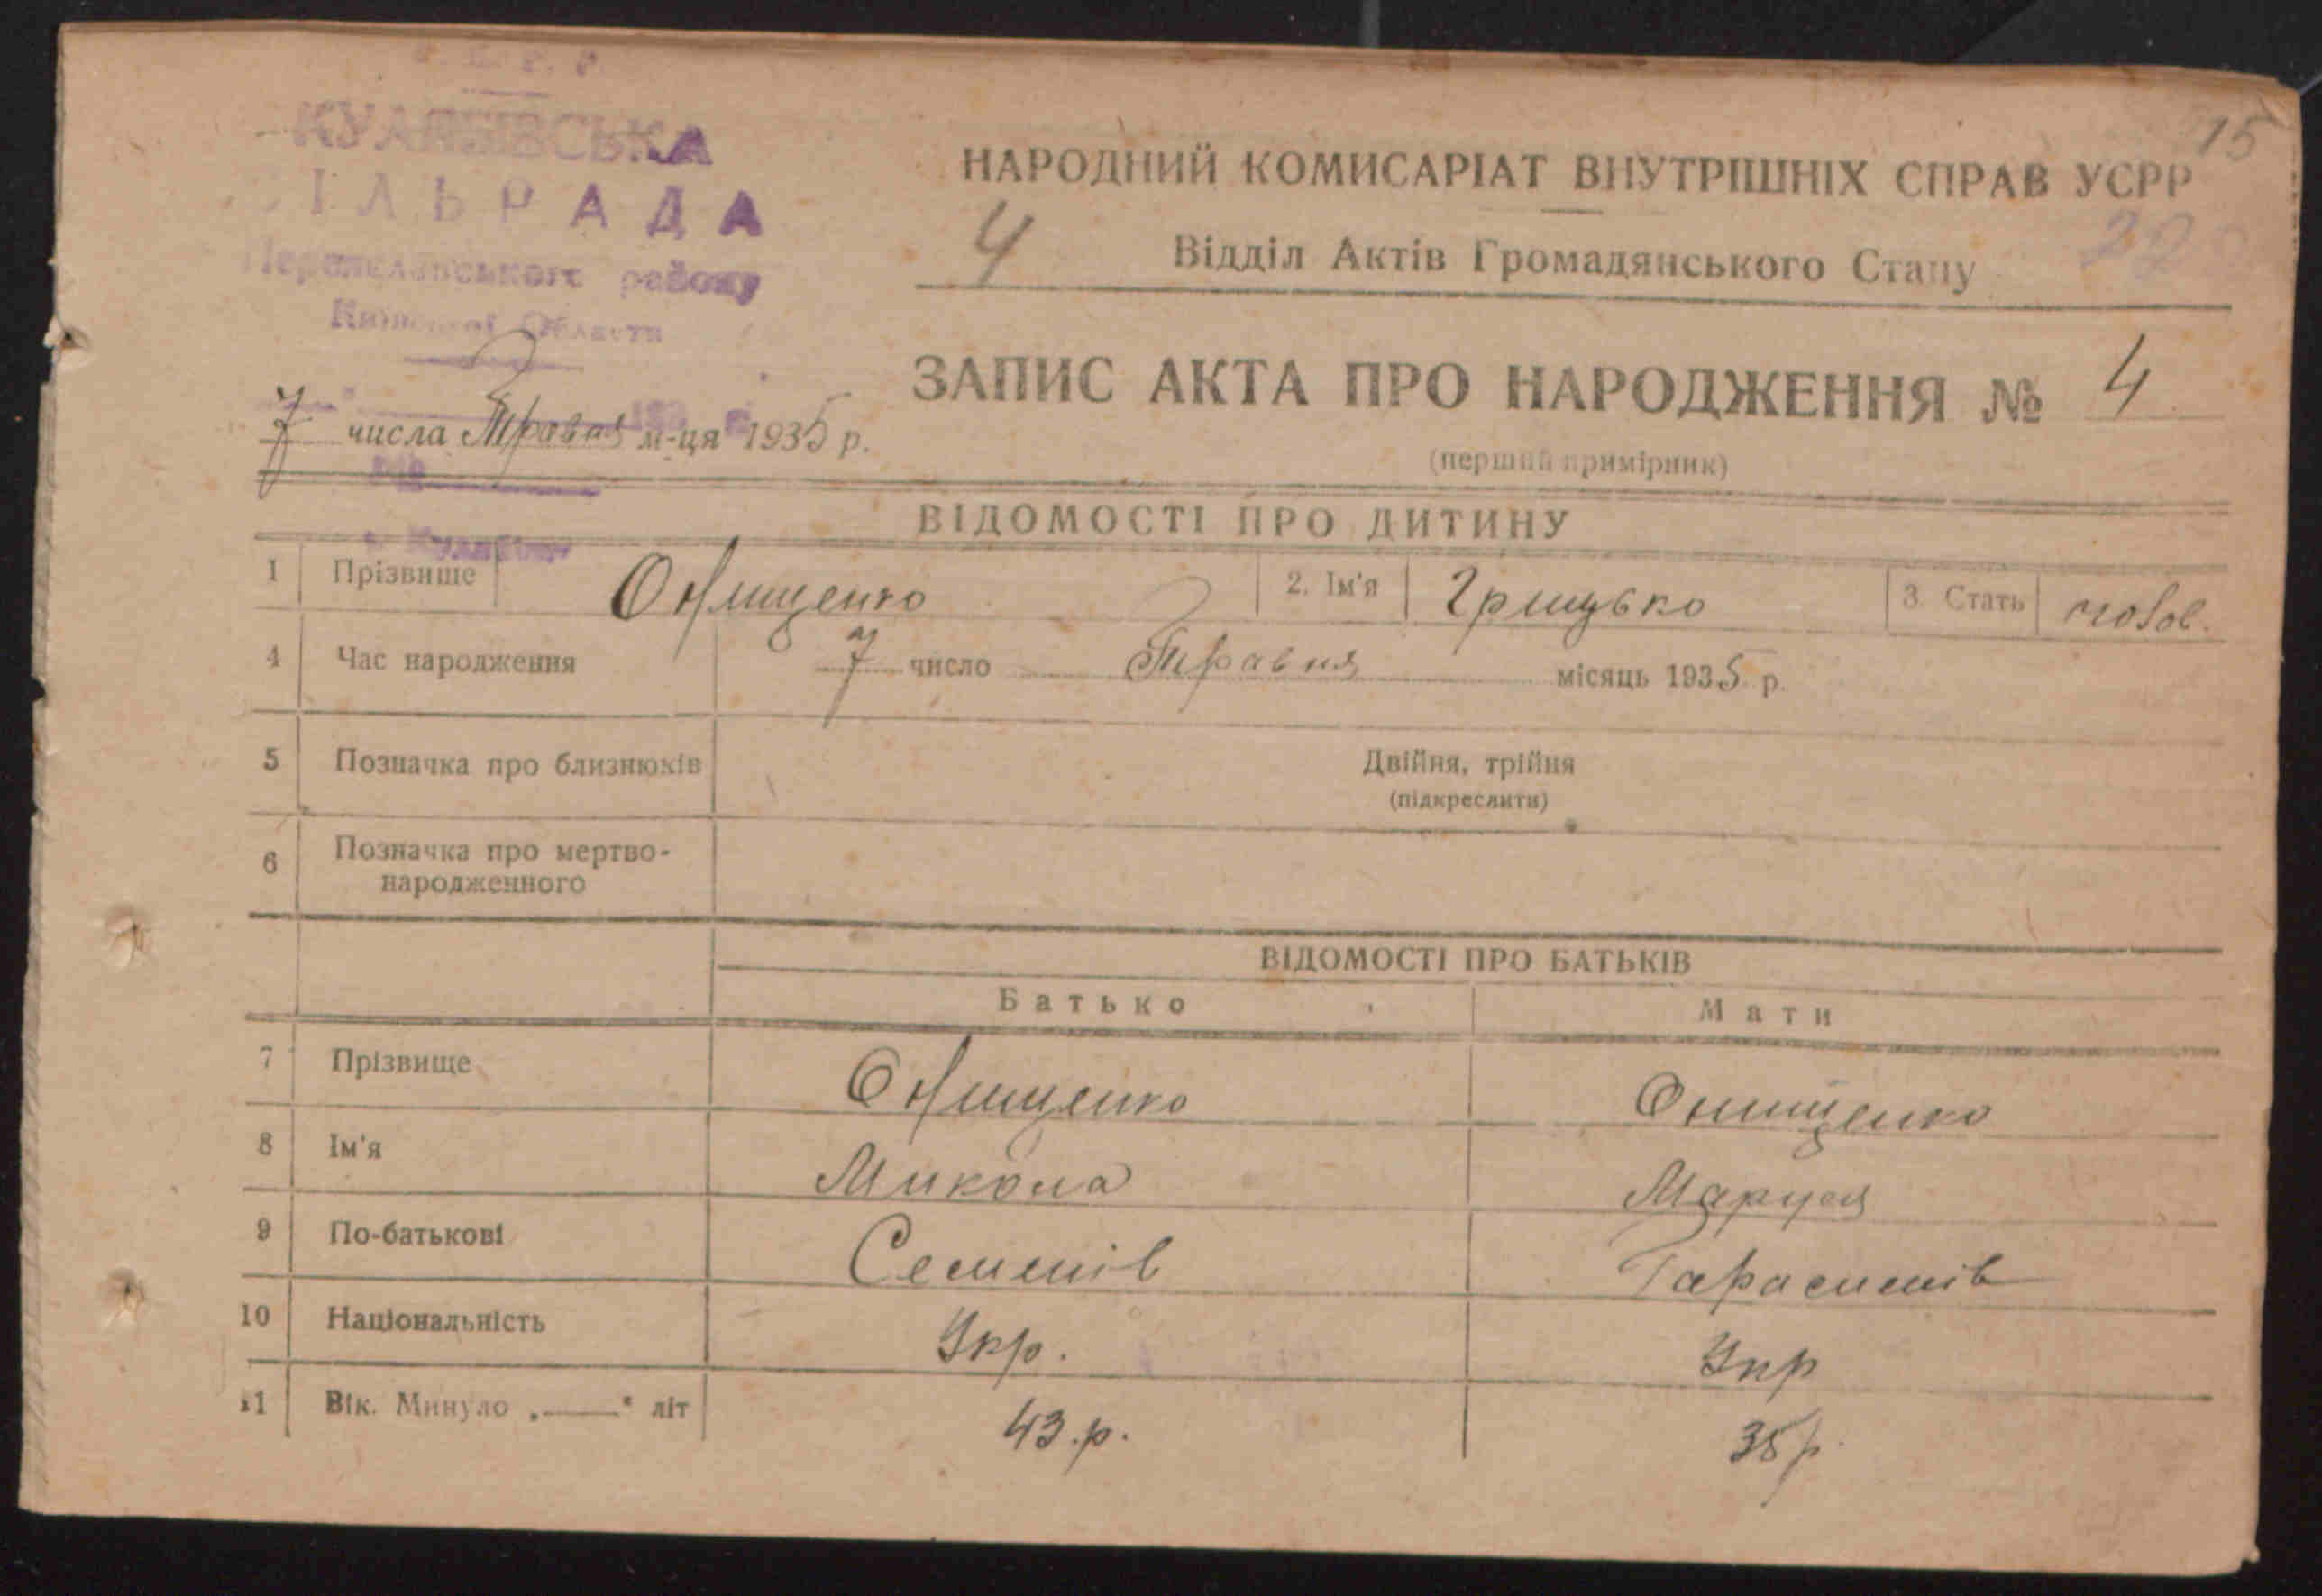 У. С. Р. Р.
СІЛЬРАДА
Переяславського району
Київської Области
15
НАРОДНИЙ КОМИСАРІАТ ВНУТРІШНІХ СПРАВ УСРР
4 Відділ Актів Громадянського Стану
22
ЗАПИС АКТА ПРО НАРОДЖЕННЯ № 4
7 числа Травня м-ця 1935 р.
(перший примірник)
ВІДОМОСТІ ПРО ДИТИНУ
1 Прізвище Онищенко 2. Ім'я Грицько 3. Стать чолов.
4 Час народження 7 число Травня місяць 1935 р.
5 Позначка про близнюків Двійня, трійня
(підкреслити)
6 Позначка про мертво-
народженного
ВІДОМОСТІ ПРО БАТЬКІВ
Батько Мати
7 Прізвище Онищенко Онищенко
8 Ім'я Микола Маруся
9 По-батькові Семенів Гарасимів
10 Національність Укр. Укр
11 Вік. Минуло „——" літ 43.р. 35р.